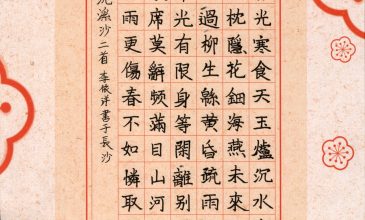 光寒食天玉爐沉水
枕隱花鈿海燕未來
過柳生緜黄昏疏雨
光有限身等閒離別
席莫辭頻滿目山河
雨更傷春不如憐取
浣溪沙二首 李依洋書于長沙